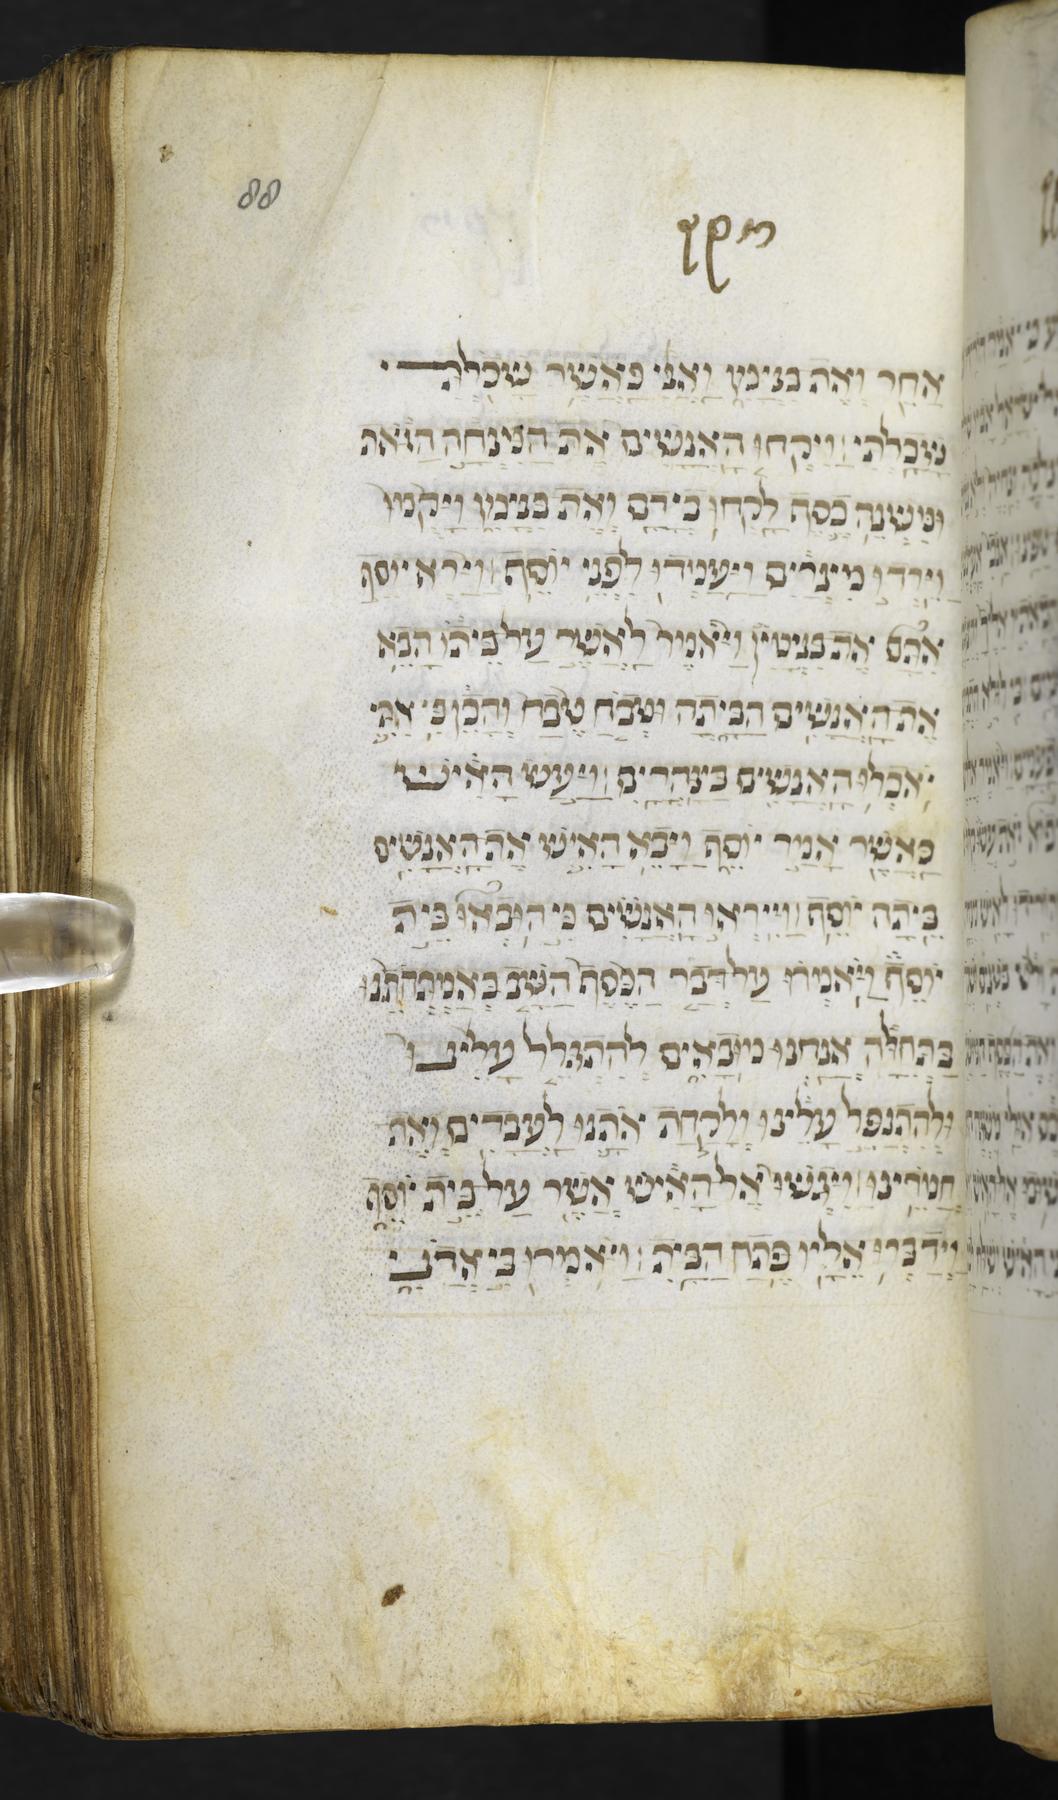 88
מקץ
אחר ואת בנימין ואני כאשר שכלתי
שכלתי ויקחו האנשים את המנחה הזאת
ומשנה כסף לקחו בידם ואת בנימין ויקמו
וירדו מצרים ויעמדו לפני יוסף וירא יוסף
אתם את בנימין ויאמר לאשר על ביתו הבא
את האנשים הביתה וטבח טבח והכן כי אתי
יאכלו האנשים בצהרים ויעש האיש
כאשר אמר יוסף ויבא האיש את האנשים
ביתה יוסף וייראו האנשים כי הובאו בית
יוסף ויאמרו על דבר הכסף השב באמתחתנו
בתחלה אנחנו מובאים להתגלל עלינו
ולהתנפל עלינו ולקחת אתנו לעבדים ואת
חמרינו ויגשו אל האיש אשר על בית יוסף
וידברו אליו פתח הבית ויאמרו בי אדני